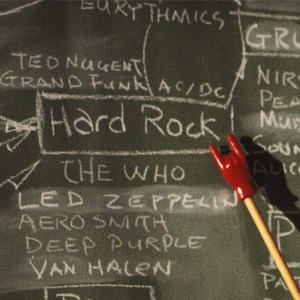 EURYTHMICS
TED NUGENT
GRAND FUNK AC/DC
Hard Rock
THE WHO
LED ZEPPELIN
AEROSMITH
DEEP PURPLE
VAN HALEN
GRU
NIR
PEA
MU
SOUN
ALIC
P
PA